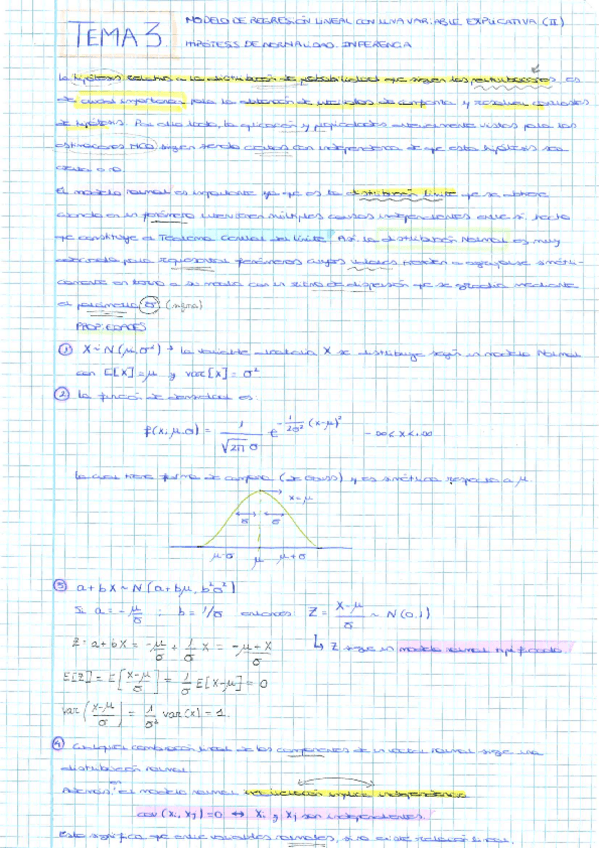 TEMA 3
MODELO DE REGRESIÓN LINEAL CON UNA VARIABLE EXPLICATIVA (II)
HIPÓTESIS DE NORMALIDAD. INFERENCIA
La hipótesis relativa a la distribución de probabilidad que siguen las perturbaciones es
de crucial importancia para la obtención de intervalos de confianza y resolver contrastes
de hipótesis. Por otro lado, la aplicación y propiedades anteriormente vistas para los
estimadores MCO siguen siendo ciertas con independencia de que esta hipótesis sea
cierta o no.
El modelo normal es importante ya que es la distribución límite que se obtiene
cuando en un fenómeno intervienen múltiples causas independientes entre sí, hecho
que constituye el Teorema Central del Límite. Así, la distribución Normal es muy
adecuada para representar fenómenos cuyos valores tienden a agruparse simétri-
camente en torno a su media con un ritmo de dispersión que se gradúa mediante
el parámetro σ (sigma)
PROPIEDADES
① X ~ N(μ,σ²) → la variable aleatoria X se distribuye según un modelo Normal
con E[X]=μ y var[X]=σ²
② La función de densidad es:
f(x,μ,σ) = 1/(√2π σ) e^(-1/2σ² (x-μ)²) -∞<x<+∞
la cual tiene forma de campana (de Gauss) y es simétrica respecto a μ.
x=μ
σ σ
μ-σ μ μ+σ
③ a+bX ~ N(a+bμ, b²σ²)
Si a = -μ/σ ; b = 1/σ entonces Z = X-μ/σ ~ N(0,1)
Z = a+bX = -μ/σ + 1/σ X = -μ+X/σ
↳ Z sigue un modelo normal tipificado.
E[Z] = E[X-μ/σ] = 1/σ E[X-μ] = 0
var(X-μ/σ) = 1/σ² var(X) = 1.
④ Cualquier combinación lineal de los componentes de un vector normal sigue una
distribución normal
Además, en el modelo normal incorrelación implica independencia
cov(Xi, Xj)=0 ↔ Xi y Xj son independientes.
Esto significa que entre variables normales, si no existe relación lineal,